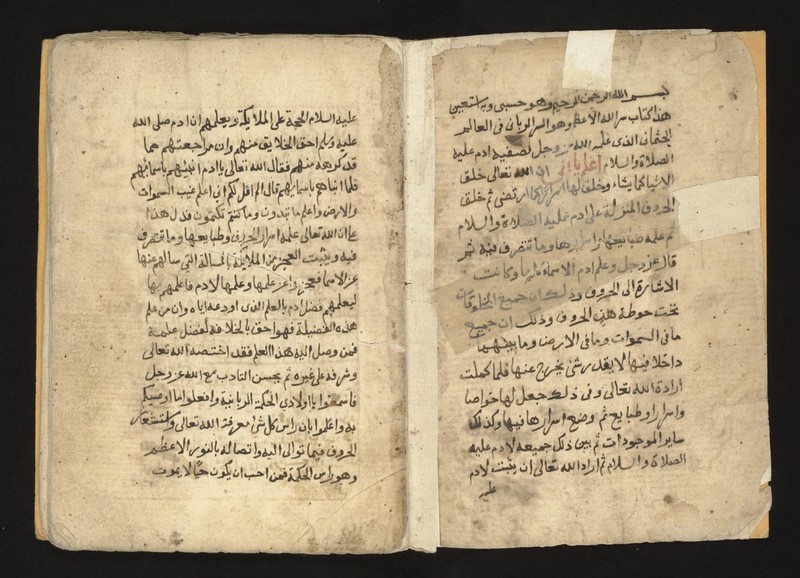 بسم الله الرحمن الرحيم وهو حسبي وبه استعين
هذا كتاب سر الله الاعظم وهو السر الرباني في العالم
الجثماني الذي علمه الله عز وجل لصفيه ادم عليه
الصلاة والسلام اعلم يا ان الله تعالى خلق
الاشياء كما يشاء وخلق لها اسرار كما ارتضى ثم خلق
الحروف المنزلة على ادم عليه الصلاة والسلام
ثم علمه طبايعها واسرارها وما تتصرف فيه ثم
قال عز وجل وعلم ادم الاسماء كلها وكانت
الاشارة الى الحروف وذلك ان جميع المخلوقات
تحت حوطة هذه الحروف وذلك ان جميع
ما في السموات وما في الارض وما بينهما
داخلا فيها لا يقدر شئ يخرج عنها فلما كملت
ارادة الله تعالى وفي ذلك جعل لها خواصا
واسرار وطبايع ثم وضع اسرارها فيها وكذلك
ساير الموجودات ثم بين ذلك جميعه لادم عليه
الصلاة والسلام ثم اراد الله تعالى ان يثبت لادم
عليه
عليه السلام الحجة على الملايكة ويعلمهم ان ادم صلى الله
عليه وسلم احق الخلايق منهم وان مراجعتهم هما
قد كرهه منهم فقال الله تعالى يا ادم انبئهم باسمائهم
فلما انباهم باسمائهم قال الم اقل لكم اني اعلم غيب السموات
والارض واعلم ما تبدون وما كنتم تكتمون فدل هذا
على ان الله تعالى علمه اسرار الحروف وطبايعها وما تتصرف
فيه ويثبت العجز من الملايكة المسالة التي سالهم عنها
عن الاسما فعجزوا عن علمها وعلمها لادم فاعلمهم بها
ليعلمهم فضل ادم بالعلم الذي اودعه اياه وان من علم
هذه الفضيلة فهو احق بالخلافة لفضل علمه
فمن وصل اليه هذا العلم فقد اختصه الله تعالى
وشرفه على غيره ثم يحسن التادب مع الله عز وجل
فاسمعوا يا اولادي الحكمة الربانية وافعلوا ما اوصيكم
به واعلموا بان راس كل شئ معرفة الله تعالى واستشعار
الحروف فيما توالى اليه واتصاله بالنور الاعظم
وهو راس الحكمة فمن احب ان يكون حيا لا يموت